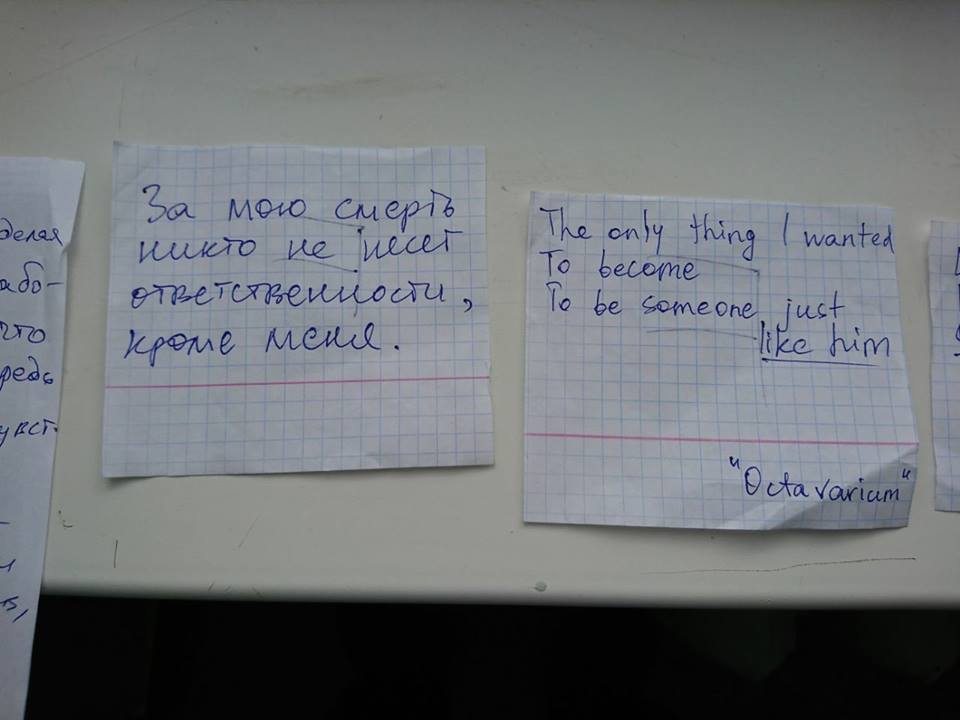 делая
За мою смерть
никто не несет
ответственности,
кроме меня.
The only thing I wanted
To become
To be someone just
like him
"Octavarium"